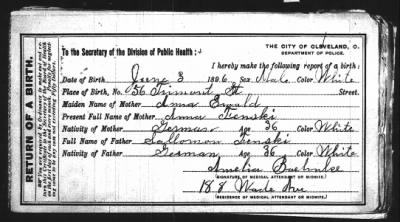 THE CITY OF CLEVELAND, O.
DEPARTMENT OF POLICE.
To the Secretary of the Division of Public Health:
I hereby make the following report of a birth:
Date of Birth June 3 1896 Sex Male Color White
Place of Birth, No. 56 Fremont St. Street.
Maiden Name of Mother Anna Ewald
Present Full Name of Mother Anna Tenski
Nativity of Mother German Age 36 Color White
Full Name of Father Sallomon Tenski
Nativity of Father German Age 36 Color White
Amelia
(SIGNATURE OF MEDICAL ATTENDANT OR MIDWIFE.)
188 Wade Ave
(RESIDENCE OF MEDICAL ATTENDANT OR MIDWIFE.)
RETURN OF A BIRTH.